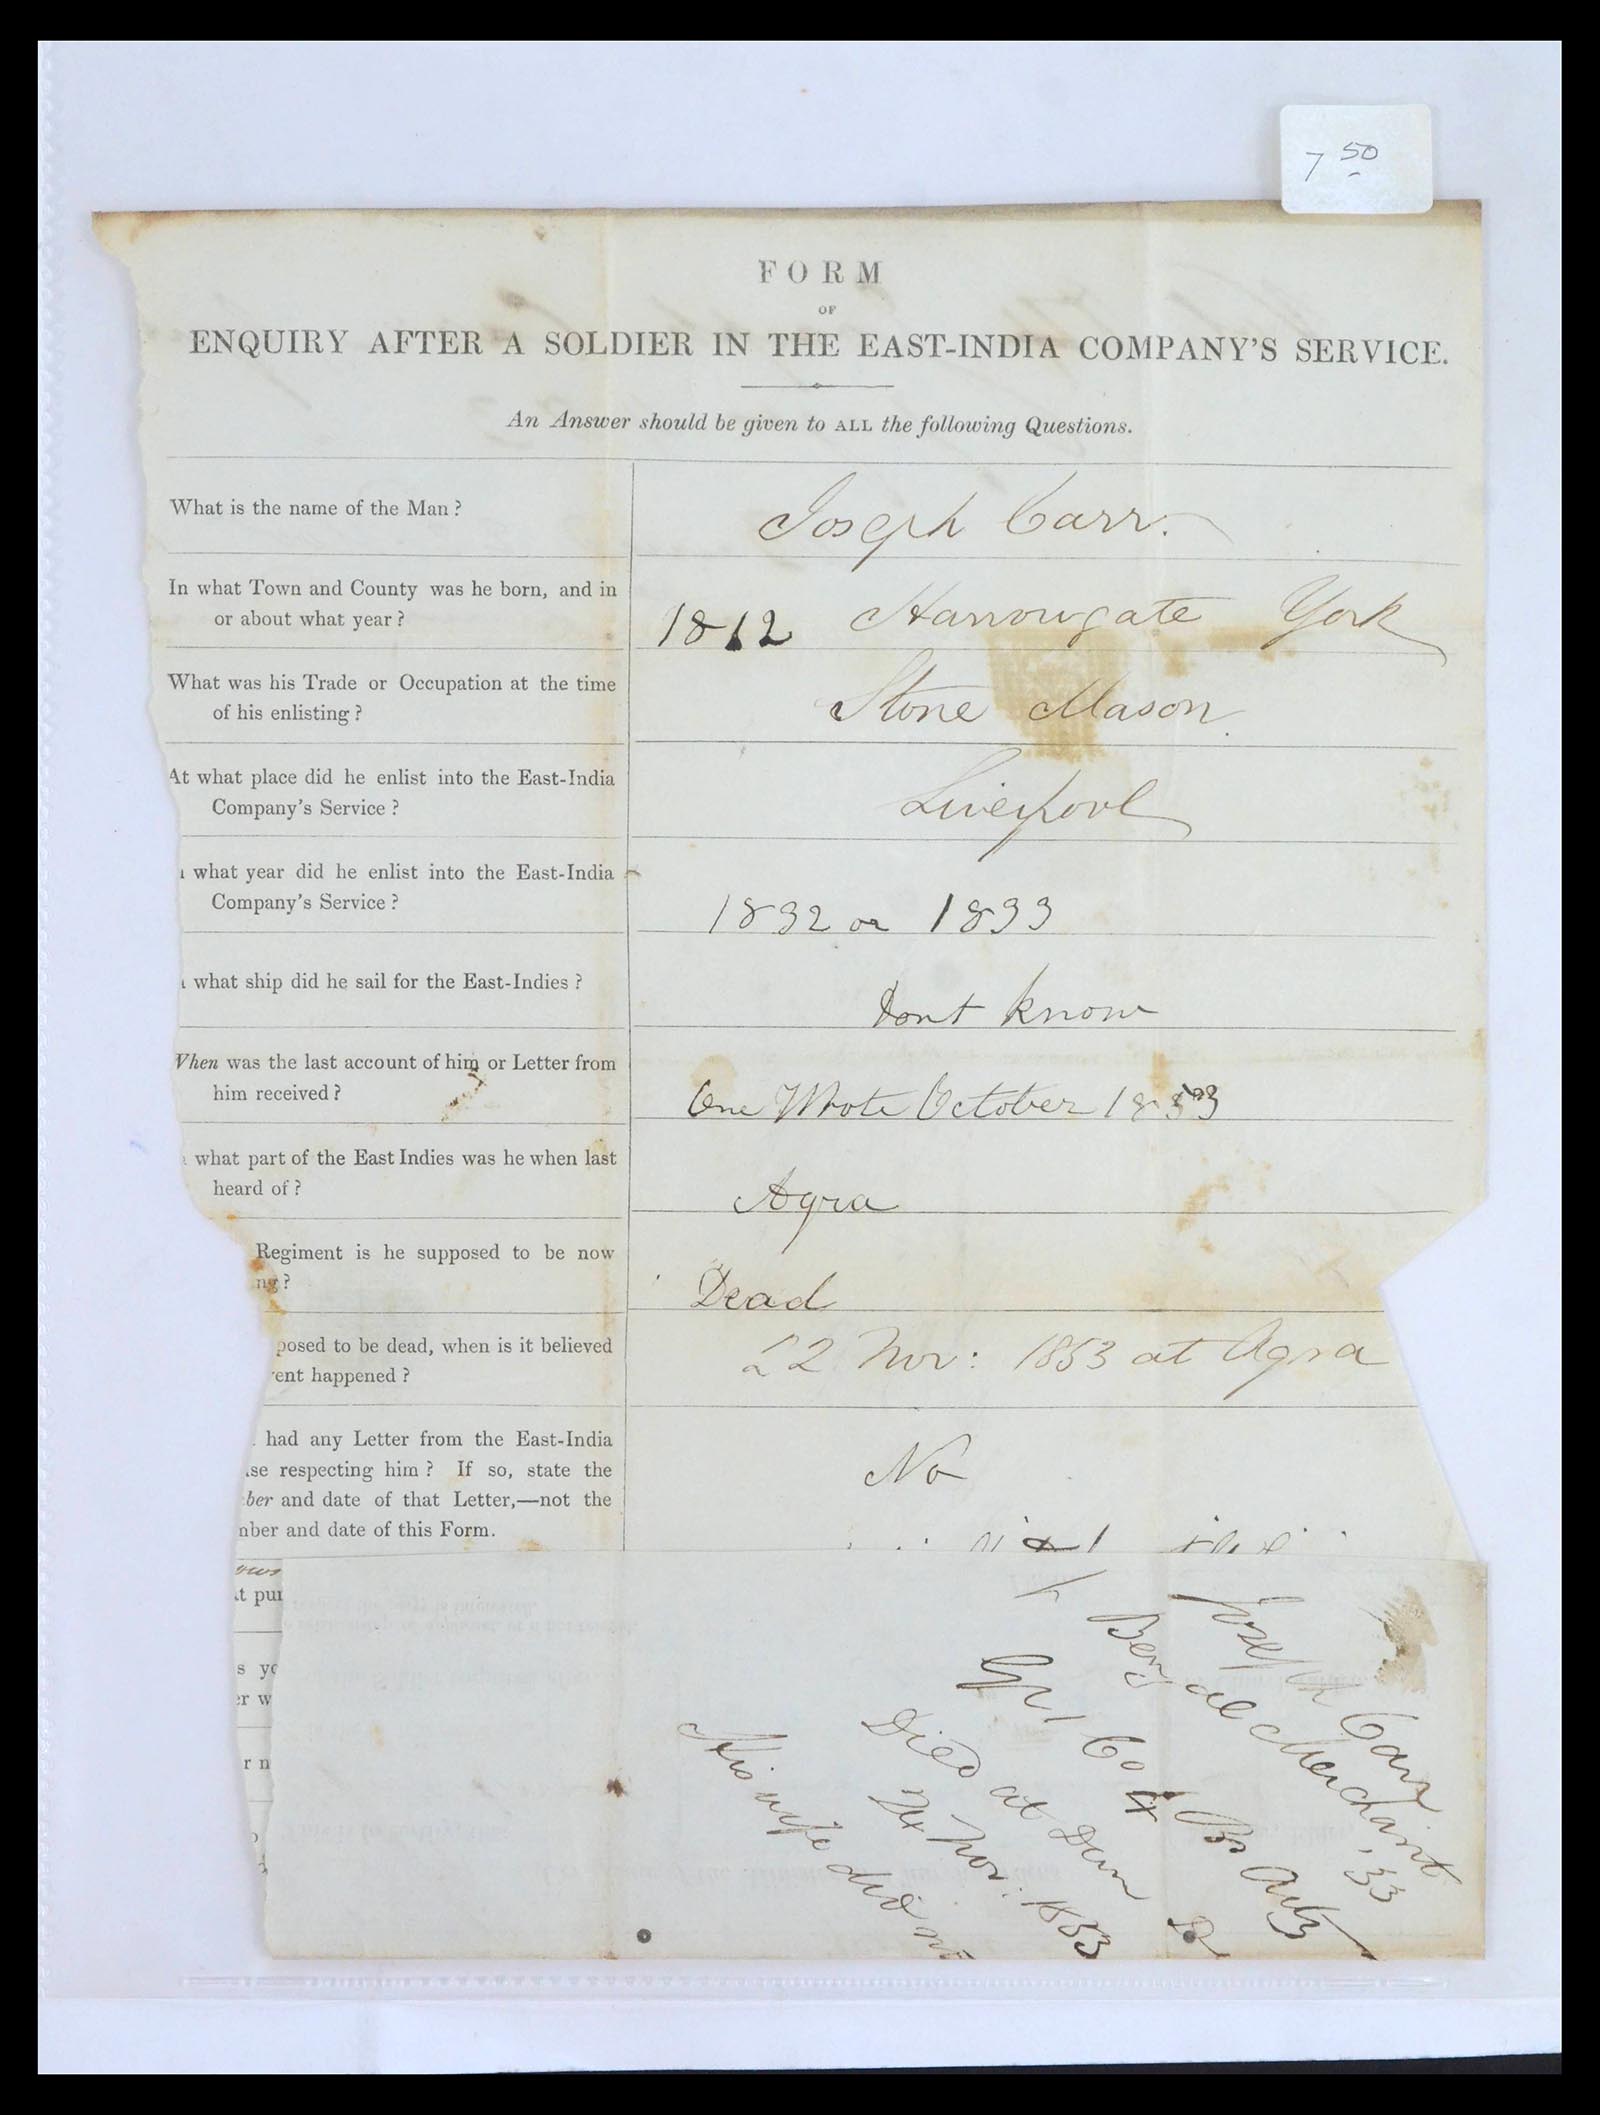 7 50
FORM
OF
ENQUIRY AFTER A SOLDIER IN THE EAST-INDIA COMPANY'S SERVICE.
An Answer should be given to ALL the following Questions.
What is the name of the Man?
Joseph Carr.
In what Town and County was he born, and in
or about what year?
1812 Harrowgate York
What was his Trade or Occupation at the time
of his enlisting?
Stone Mason.
At what place did he enlist into the East-India
Company's Service?
Liverpool
what year did he enlist into the East-India
Company's Service?
1832 or 1833
what ship did he sail for the East-Indies?
Dont know
When was the last account of him or Letter from
him received?
One Wrote October 1853
what part of the East Indies was he when last
heard of?
Agra
Regiment is he supposed to be now
ng?
Dead
posed to be dead, when is it believed
ent happened?
22 Nov: 1853 at Agra
had any Letter from the East-India
se respecting him? If so, state the
ber and date of that Letter,—not the
mber and date of this Form.
No
t pur
s yo
er w
r n
Joseph Carr
Bengal Merchant, 33
Co Br Arty
Died at Dum
Nov: 1853
His wife died